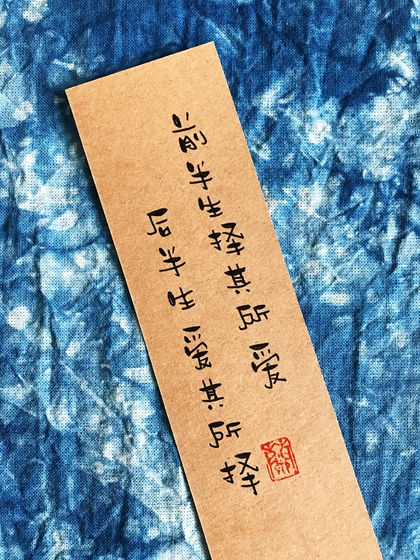 前半生择其所爱
后半生爱其所择